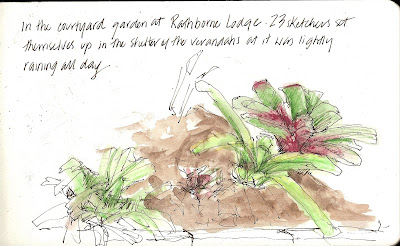 In the courtyard garden at Rathborne Lodge. 23 sketchers set
themselves up in the shelter of the verandahs as it was lightly
raining all day